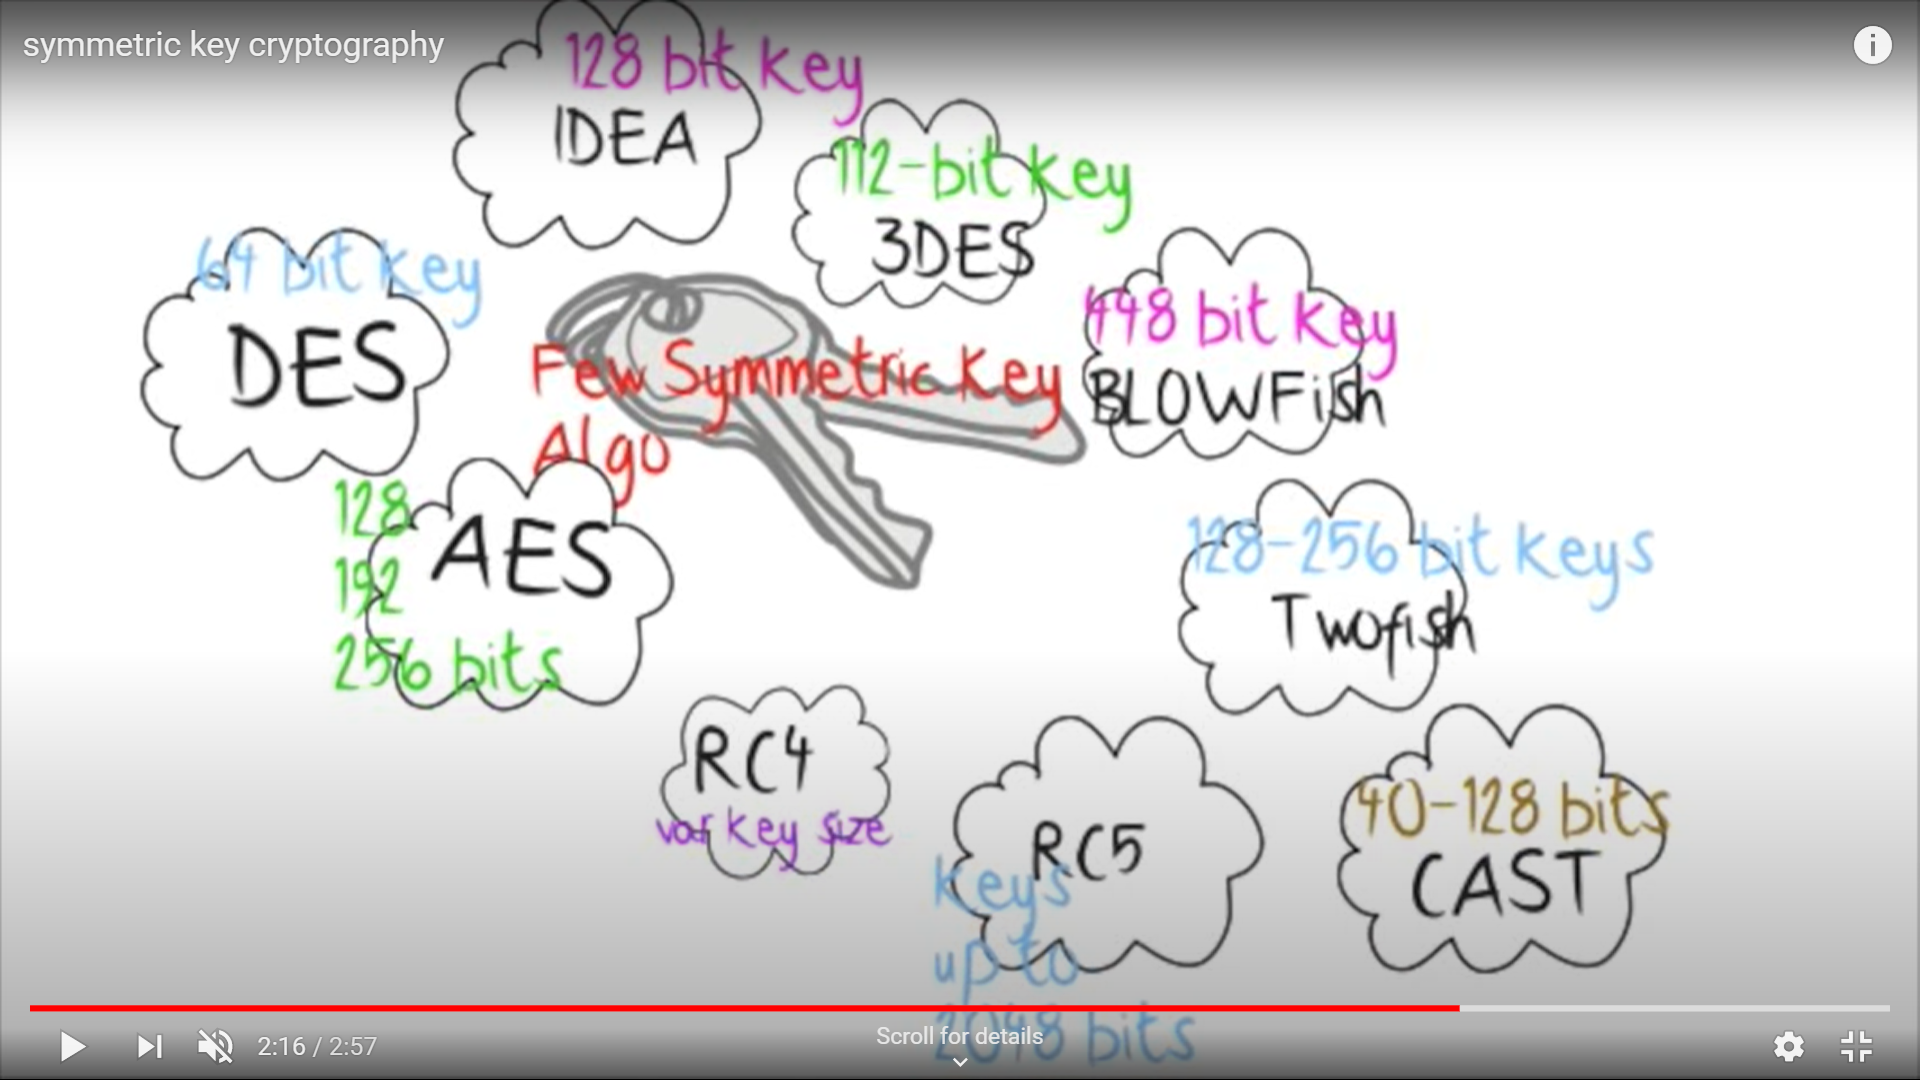 symmetric key cryptography
128 bit key
IDEA
112-bit key
3DES
64 bit key
DES
448 bit key
BLOWFish
Few Symmetric Key
Algo
128
192
256 bits
AES
128-256 bit keys
Twofish
RC4
var key size
RC5
keys
up to
2048 bits
40-128 bits
CAST
2:16 / 2:57
Scroll for details